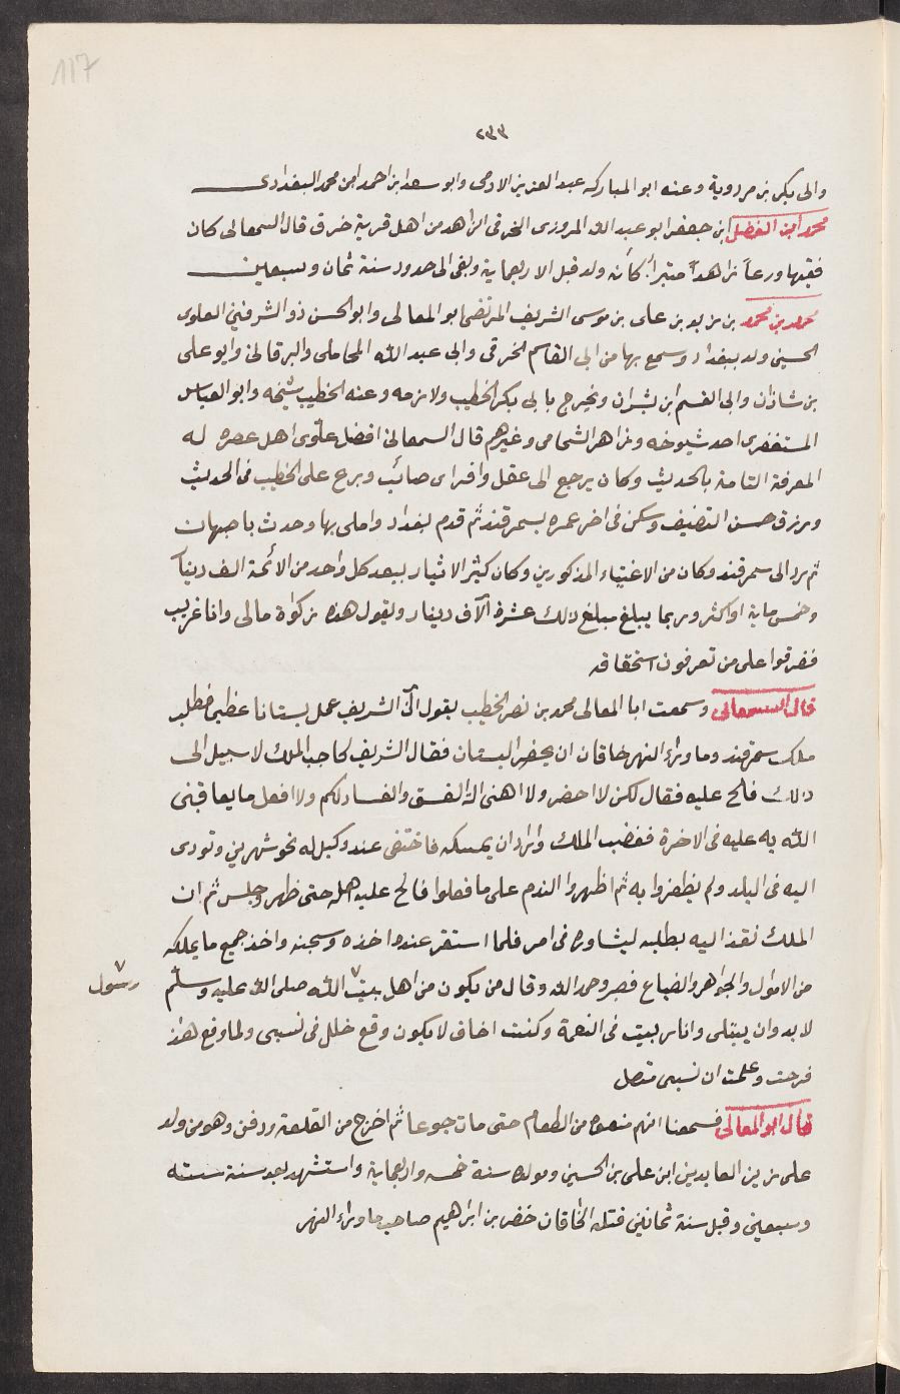 117
٢٣٣
والى بكر بن مردوية وعنه ابو المبارك عبد العزيز الادمى وابو سعد ابن احمد ابن محمد البغدادى
محمد ابن الفضل ابن جعفر ابو عبد الله المروزى الخرقى الزاهد من اهل قرية خرق قال السمعالى كان
فقيها ورعاً زاهداً متبراً كأنه ولد قبل الاربعماية وبقى الى حدود سنة ثمان وسبعين
محمد بن محمد بن زيد بن على بن موسى الشريف المرتضى ابو المعالى وابو الحسن ذو الشرفين العلوى
الحسينى ولد ببغداد وسمع بها من ابى القاسم الخرقى وابى عبد الله المحاملى والبرقانى وابو على
بن شاذان وابى القسم ابن بشران وتخرج بابى بكر الخطيب ولازمه وعنه الخطيب شيخه وابو العباس
المستغفرى احد شيوخه وزاهر الشحامى وغيرهم قال السمعانى افضل علوى اهل عصره له
المعرفة التامة بالحديث وكان يرجع الى عقل وافر راى صائب وبرع على الخطيب فى الحديث
ورزق حسن التصنيف وسكن فى اخر عمره بسمرقند ثم قدم بغداد واملى بها وحدث باصبهان
ثم رد الى سمرقند وكان من الاغنياء المذكورين وكان كثير الاثيار يبعد كل واحد من الائمة الف دينار
وخمس ماية او اكثر وربما يبلغ مبلغ ذلك عشرة آلاف دينار ويقول هذه زكوة مالى وانا غريب
ففرقوا على من تعرفون استحقاقه
قال السمعالى وسمعت ابا المعالى محمد بن نصر الخطيب يقول ان الشريف عمل بستانا عظيما فطلب
ملك سمرقند وما وراء النهر خاقان ان يحضر البستان فقال الشريف لحاجب الملك لا سبيل الى
ذلك فالح عليه فقال لكن لا احضر ولا اهنى الة الفسق والفساد لكم ولا افعل ما يعاقبنى
الله به عليه فى الاخرة فغضب الملك واراد ان يمسكه فاختفى عند وكيل له نحو شهرين ونودى
اليه فى البلد ولم يظفروا به ثم اظهروا الندم على ما فعلوا فالح عليه اهله حتى ظهر وجلس ثم ان
الملك نفذ اليه يطلبه ليشاوره فى امر فلما استقر عنده اخذه وسجنه واخذ جميع ما يملكه
من الاموال والجواهر والضياع فصبر وحمد الله وقال من يكون من اهل بيت الله صلى الله عليه وسلم
رسول
لا بد وان يبتلى واناس بيت فى النعمة وكنت اخاف لا يكون وقع خلل فى نسبى ولما وقع هذا
فرحت وعلمت ان نسبى متصل
قال ابو المعالى فسمعنا انهم منعوه من الطعام حتى مات جوعا ثم اخرج من القلعة ودفن وهو من ولد
على زين العابدين ابن على بن الحسين ومولده سنة خمسه واربعماية واستشهد بعد سنة سته
وسبعين وقبل سنة ثمانين قتله الخاقان خضر بن ابراهيم صاحب ما وراء النهر